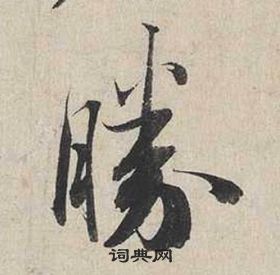 勝
词典网